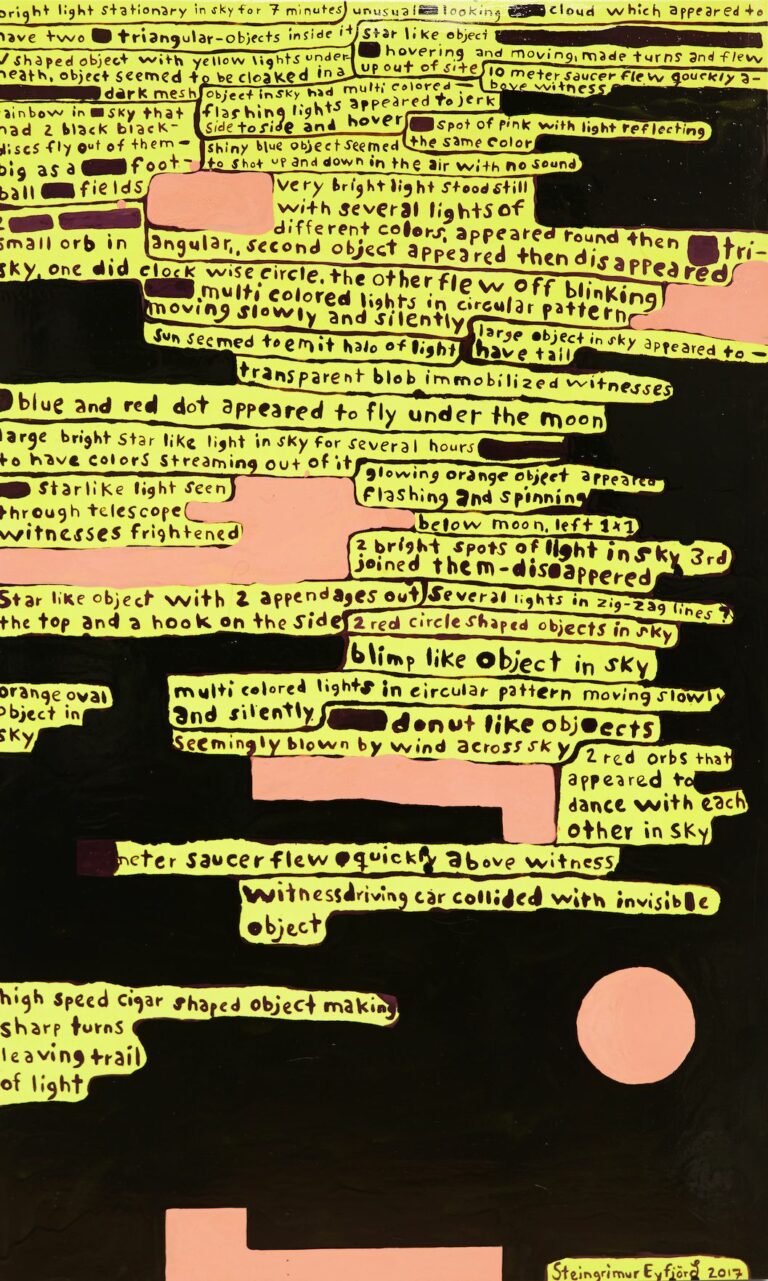 bright light stationary in sky for 7 minutes unusual looking cloud which appeared to
have two triangular-objects inside it star like object
V shaped object with yellow lights under hovering and moving, made turns and flew
neath, object seemed to be cloaked in a up out of site 10 meter saucer flew qouckly a-
dark mesh object in sky had multi colored bove witness
rainbow in sky that flashing lights appeared to jerk
had 2 black black- side to side and hover spot of pink with light reflecting
discs fly out of them- shiny blue object seemed the same color
big as a foot- to shot up and down in the air with no sound
ball fields very bright light stood still
2 with several lights of
different colors, appeared round then tri-
small orb in angular,, second object appeared then disappeared
sky, one did clock wise circle. the other flew off blinking
multi colored lights in circular pattern
moving slowly and silently large object in sky appeared to -
sun seemed to emit halo of light have tail
transparent blob immobilized witnesses
blue and red dot appeared to fly under the moon
large bright star like light in sky for several hours
to have colors streaming out of it glowing orange object appeared
starlike light seen flashing and spinning
through telescope below moon, left 1x1
witnesses frightened
2 bright spots of light in sky 3rd
joined them-disappered
Star like object with 2 appendages out several lights in zig-zag lines ?
the top and a hook on the side 2 red circle shaped objects in sky
blimp like object in sky
orange oval multi colored lights in circular pattern moving slowly
object in and silently donut like objects
sky seemingly blown by wind across sky
2 red orbs that
appeared to
dance with each
other in sky
meter saucer flew quickly above witness
witness driving car collided with invisible
object
high speed cigar shaped object making
sharp turns
leaving trail
of light
Steingrimur Eyfjörd 2017